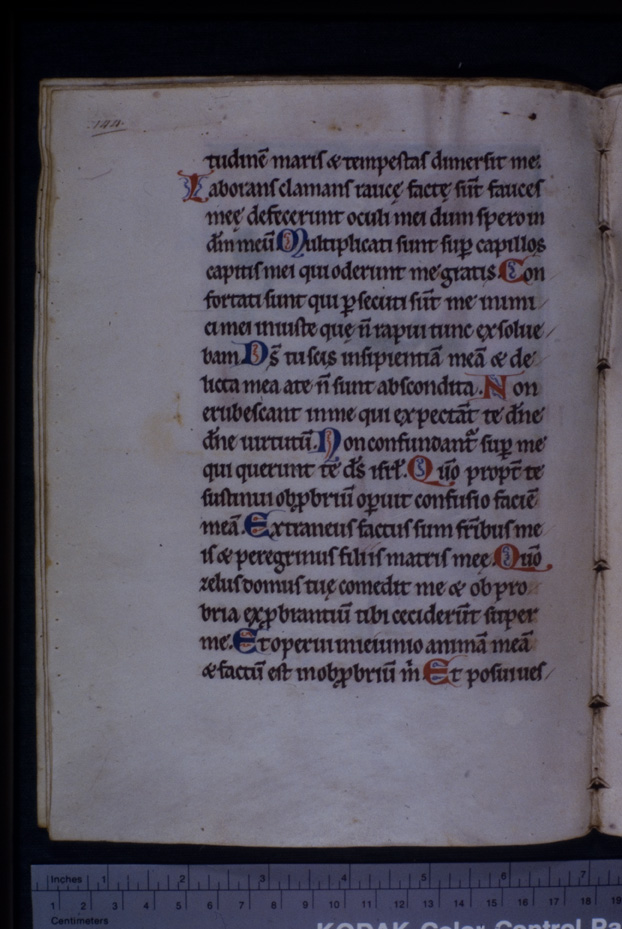 144.
tudinē maris & tempestas dimersit me.
Laborans clamans raucę factę sūt fauces
męę defecerunt oculi mei dum spero in
dm̄ meū Multiplicati sunt sup̄ capillos
capitis mei qui oderunt me gratis. Con
fortati sunt qui p̱secuti sūt me inimi
ci mei iniuste quę n̄ rapui tunc exsolue
bam. Ds̄ tu scis insipientiā meā & de
licta mea a te n̄ sunt abscondita. Non
erubescant in me qui expectāt te dn̄e
dn̄e uirtutū. Non confundant᷑ sup̄ me
qui querunt te ds̄ isrl̄. Qūo propt̄ te
sustinui obp̱briū op̱uit confusio faciē
meā. Extraneus factus sum fr̄ibus me
is & peregrinus filiis matris męę. Qūo
zelus domus tuę comedit me & obpro
bria exp̱brantiū tibi ceciderūt super
me. Et operui in ieiunio animā meā
& factū est in obp̱briū m̄. Et posui ues
Inches 1 2 3 4 5 6 7
1 2 3 4 5 6 7 8 9 10 11 12 13 14 15 16 17 18 19
Centimeters
KODAK Color Control Pa